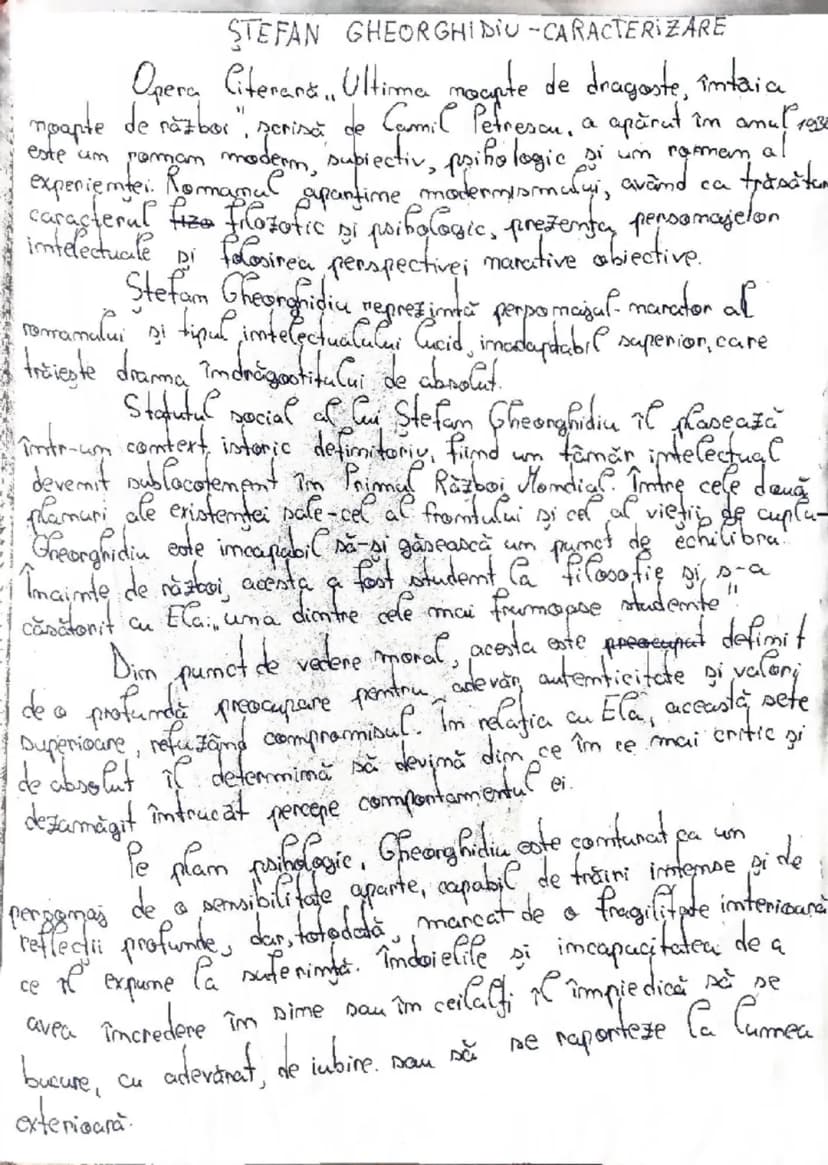 ŞTEFAN GHEORGHIDIU - CARACTERIZARE
Opera literară „Ultima noapte de dragoste, întâia
noapte de război", scrisă de Camil Petrescu, a apărut în anul 1930
este un roman modern, subiectiv, psihologic şi un roman al
experienţei. Romanul aparţine modernismului, având ca trăsătur
caracterul filozofic şi psihologic, prezenţa personajelor
intelectuale şi folosirea perspectivei narative obiective.
Ştefan Gheorghidiu reprezintă personajul-narator al
romanului şi tipul intelectualului lucid, inadaptabil superior, care
trăieşte drama îndrăgostitului de absolut.
Statutul social al lui Ştefan Gheorghidiu îl plasează
într-un context istoric definitoriu, fiind un tânăr intelectual
devenit sublocotenent în Primul Război Mondial. Între cele două
planuri ale existenţei sale-cel al frontului şi cel al vieţii de cuplu-
Gheorghidiu este incapabil să-şi găsească un punct de echilibru.
Înainte de război, acesta a fost student la filosofie şi s-a
căsătorit cu Ela: „una dintre cele mai frumoase studente".
Din punct de vedere moral, acesta este preocupat definit
de o profundă preocupare pentru adevăr, autenticitate şi valori
superioare, refuzând compromisul. În relaţia cu Ela, această sete
de absolut îl determină să devină din ce în ce mai critic şi
dezamăgit întrucât percepe comportamentul ei.
Pe plan psihologic, Gheorghidiu este conturat ca un
personaj de o sensibilitate aparte, capabil de trăiri intense şi de
reflecţii profunde, dar, totodată, marcat de o fragilitate interioară
ce îl expune la suferinţă. Îndoielile şi incapacitatea de a
avea încredere în sine sau în ceilalţi îl împiedică să se
bucure, cu adevărat, de iubire sau să se raporteze la lumea
exterioară.